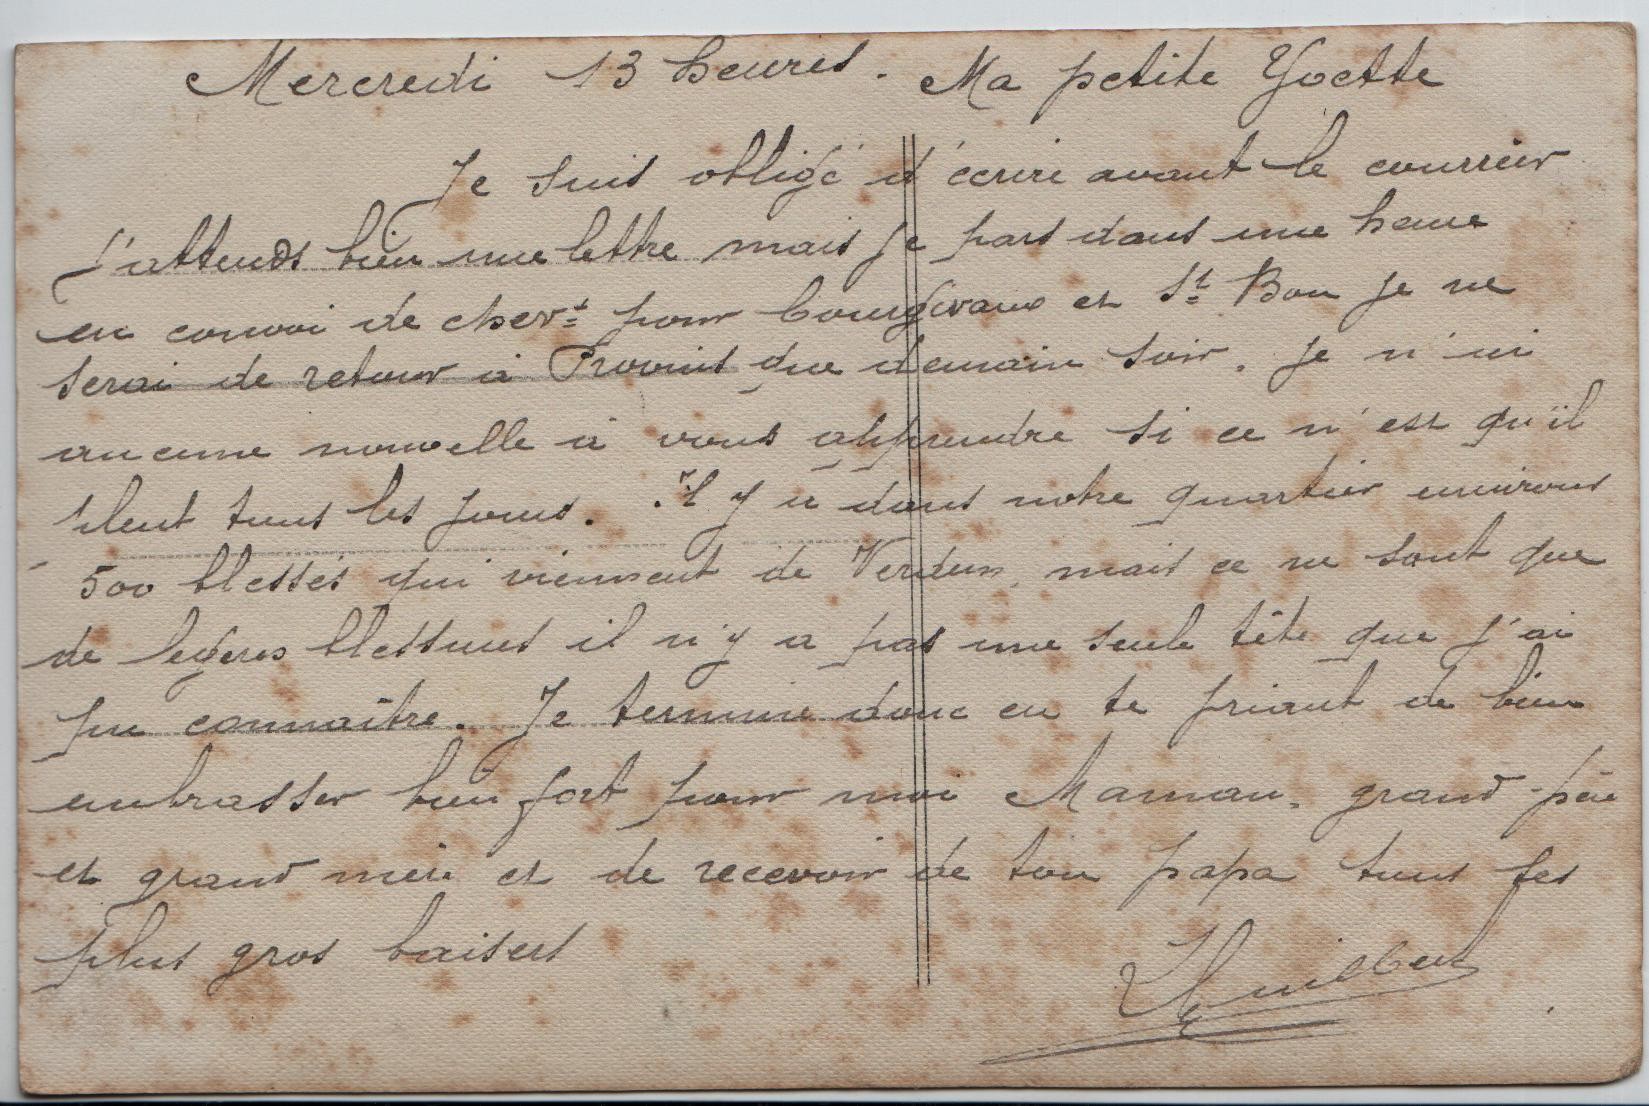 Mercredi 13 heures. Ma petite Yvette
Je suis obligé d'écrire avant le courrier
J'attends bien une lettre mais je pars dans une heure
en convoi de chevx pour Courgivaux et St Bon je ne
serai de retour à Provins que demain soir. Je n'ai
aucune nouvelle à vous apprendre si ce n'est qu'il
pleut tous les jours. Il y a dans notre quartier environs
500 blessés qui viennent de Verdun, mais ce ne sont que
de legeres blessures il n'y a pas une seule tête que j'ai
pu connaître. Je termine donc en te priant de bien
embrasser bien fort pour moi Maman, grand-père
et grand mère et de recevoir de ton papa tous ses
plus gros baisers